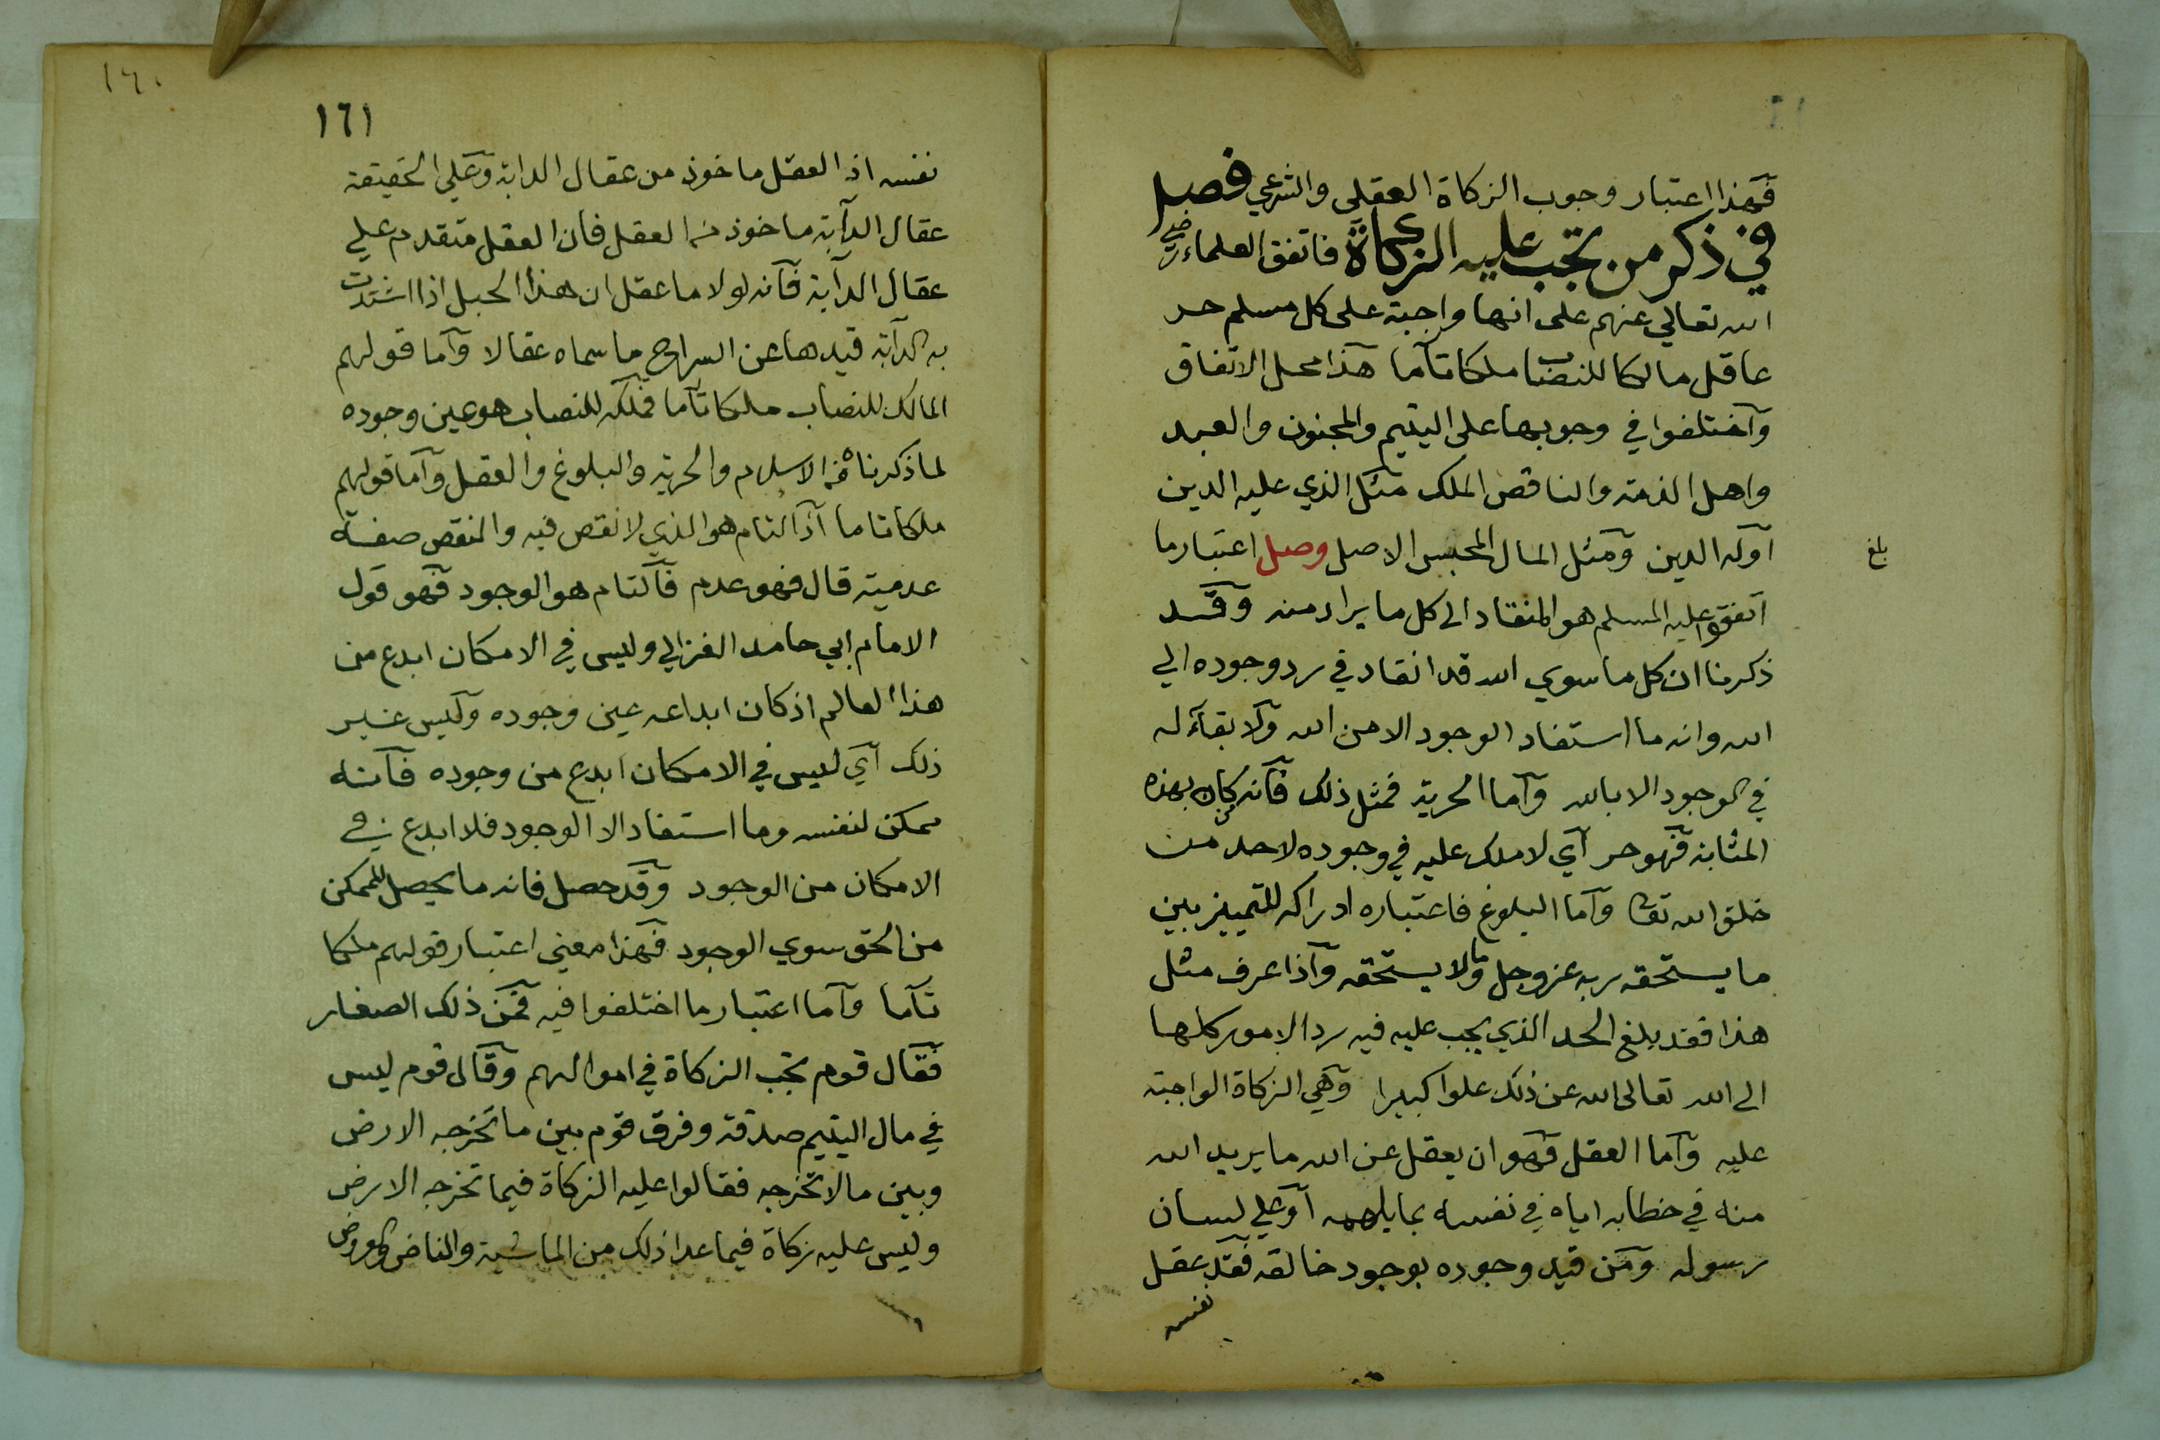 فهذا اعتبار وجوب الزكاة العقلى والشرعي فصل
في ذكر من تجب عليه الزكاة فاتفق العلماء رضي
الله تعالي عنهم على انها واجبة على كل مسلم حر
عاقل مالكا للنصاب ملكا تآما هذا محل الاتفاق
وآختلفوا في وجوبها على اليتيم والمجنون والعبد
واهل الذمة والناقص الملك مثل الذي عليه الدين
آوله الدين ومثل المال المحبس الاصل وصل اعتبار ما
اتفقوا عليه المسلم هو المنقاد الى كل ما يراد منه وقد
ذكرنا ان كل ما سوي الله قد انقاد في رد وجوده الي
الله وانه ما استفاد الوجود الا من الله ولا بقآء له
في الوجود الا بالله وآما الحرية فمثل ذلك فآنه كان بهذه
المثابة فهو حر آي لا ملك عليه في وجوده لاحد من
خلق الله تعا وآما البلوغ فاعتباره ادراكه للتمييز بين
ما يستحقه ربه عز وجل وما لا يستحقه وآذا عرف مثل
هذا فقد بلغ الحد الذي يجب عليه فيه رد الامور كلها
الى الله تعالى الله عن ذلك علوا كبيرا وهي الزكاة الواجبة
عليه وآما العقل فهو ان يعقل عن الله ما يريد الله
منه في خطابه اياه في نفسه بما يلهمه آو علي لسان
رسوله ومن قيد وجوده بوجود خالقه فقد عقل
نفسه
بلغ
١٦٠
١٦١
نفسه اذ العقل ماخوذ من عقال الدابة وعلي الحقيقة
عقال الدآبة ماخوذ من العقل فان العقل متقدم علي
عقال الدآبة فآنه لولا ما عقل ان هذا الحبل اذا اشتدت
به الدآبة قيدها عن السراح ما سماه عقالا وآما قولهم
المالك للنصاب ملكا تآما فملكه للنصاب هو عين وجوده
لما ذكرناه من الاسلام والحرية والبلوغ والعقل وآما قولهم
ملكا تاما آذ التام هو الذي لا نقص فيه والنقص صفة
عدمية قال فهو عدم فآلتام هو الوجود فهو قول
الامام ابي حامد الغزالي وليس في الامكان ابدع من
هذا العالم اذ كان ابداعه عين وجوده وليس غير
ذلك آي ليس في الامكان ابدع من وجوده فآنه
ممكن لنفسه وما استفاد الا الوجود فلا ابدع في
الامكان من الوجود وقد حصل فانه ما يحصل للممكن
من الحق سوي الوجود فهذا معني اعتبار قولهم ملكا
تآما وآما اعتبار ما اختلفوا فيه فمن ذلك الصغار
فقال قوم تجب الزكاة في اموالهم وقال قوم ليس
في مال اليتيم صدقة وفرق قوم بين ما تخرجه الارض
وبين ما لا تخرجه فقالوا عليه الزكاة فيما تخرجه الارض
وليس عليه زكاة فيما عدا ذلك من الماشية والناض والعروض